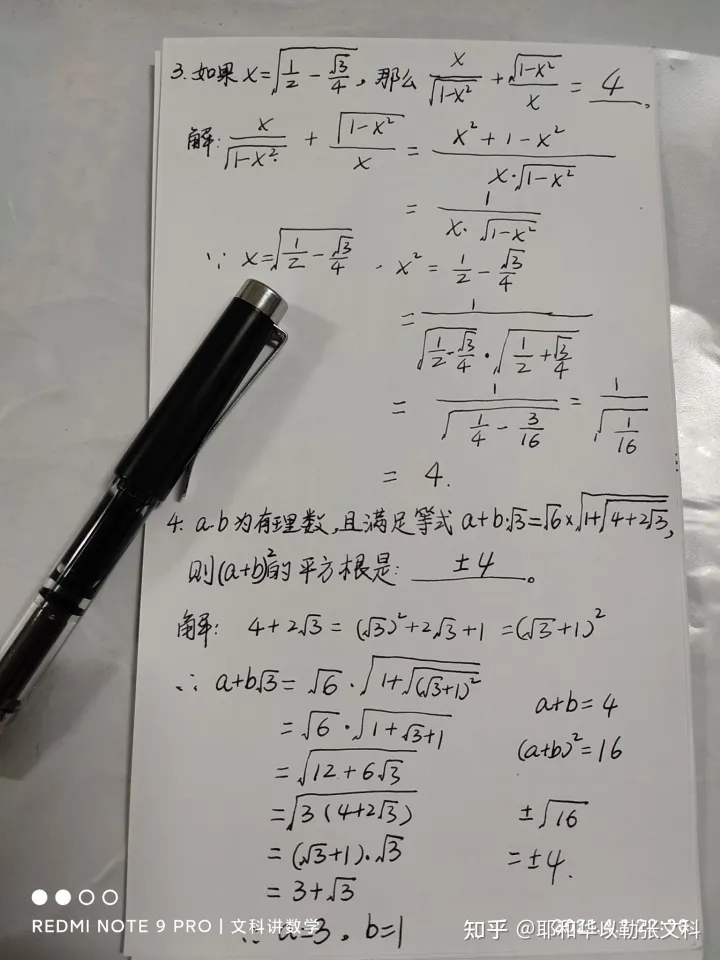 3. 如果 x=√(1/2 - √3/4), 那么 x/√(1-x²) + √(1-x²)/x = 4 。
解: x/√(1-x²) + √(1-x²)/x = (x²+1-x²)/(x·√(1-x²))
= 1/(x·√(1-x²))
∵ x=√(1/2 - √3/4) , x² = 1/2 - √3/4
= 1/(√(1/2 - √3/4)·√(1/2 + √3/4))
= 1/√(1/4 - 3/16) = 1/√(1/16)
= 4.
4. a.b 为有理数,且满足等式 a+b·√3=√6×√(1+√(4+2√3)),
则(a+b)²的平方根是: ±4 。
解: 4+2√3 = (√3)²+2√3+1 =(√3+1)²
∴ a+b√3 = √6·√(1+√((√3+1)²))
= √6·√(1+√3+1)
= √(12+6√3)
= √(3(4+2√3))
= (√3+1)·√3
= 3+√3
∵ a=3。b=1
a+b=4
(a+b)²=16
±√16
=±4.
REDMI NOTE 9 PRO | 文科讲数学
知乎 @耶和华以勒张文科